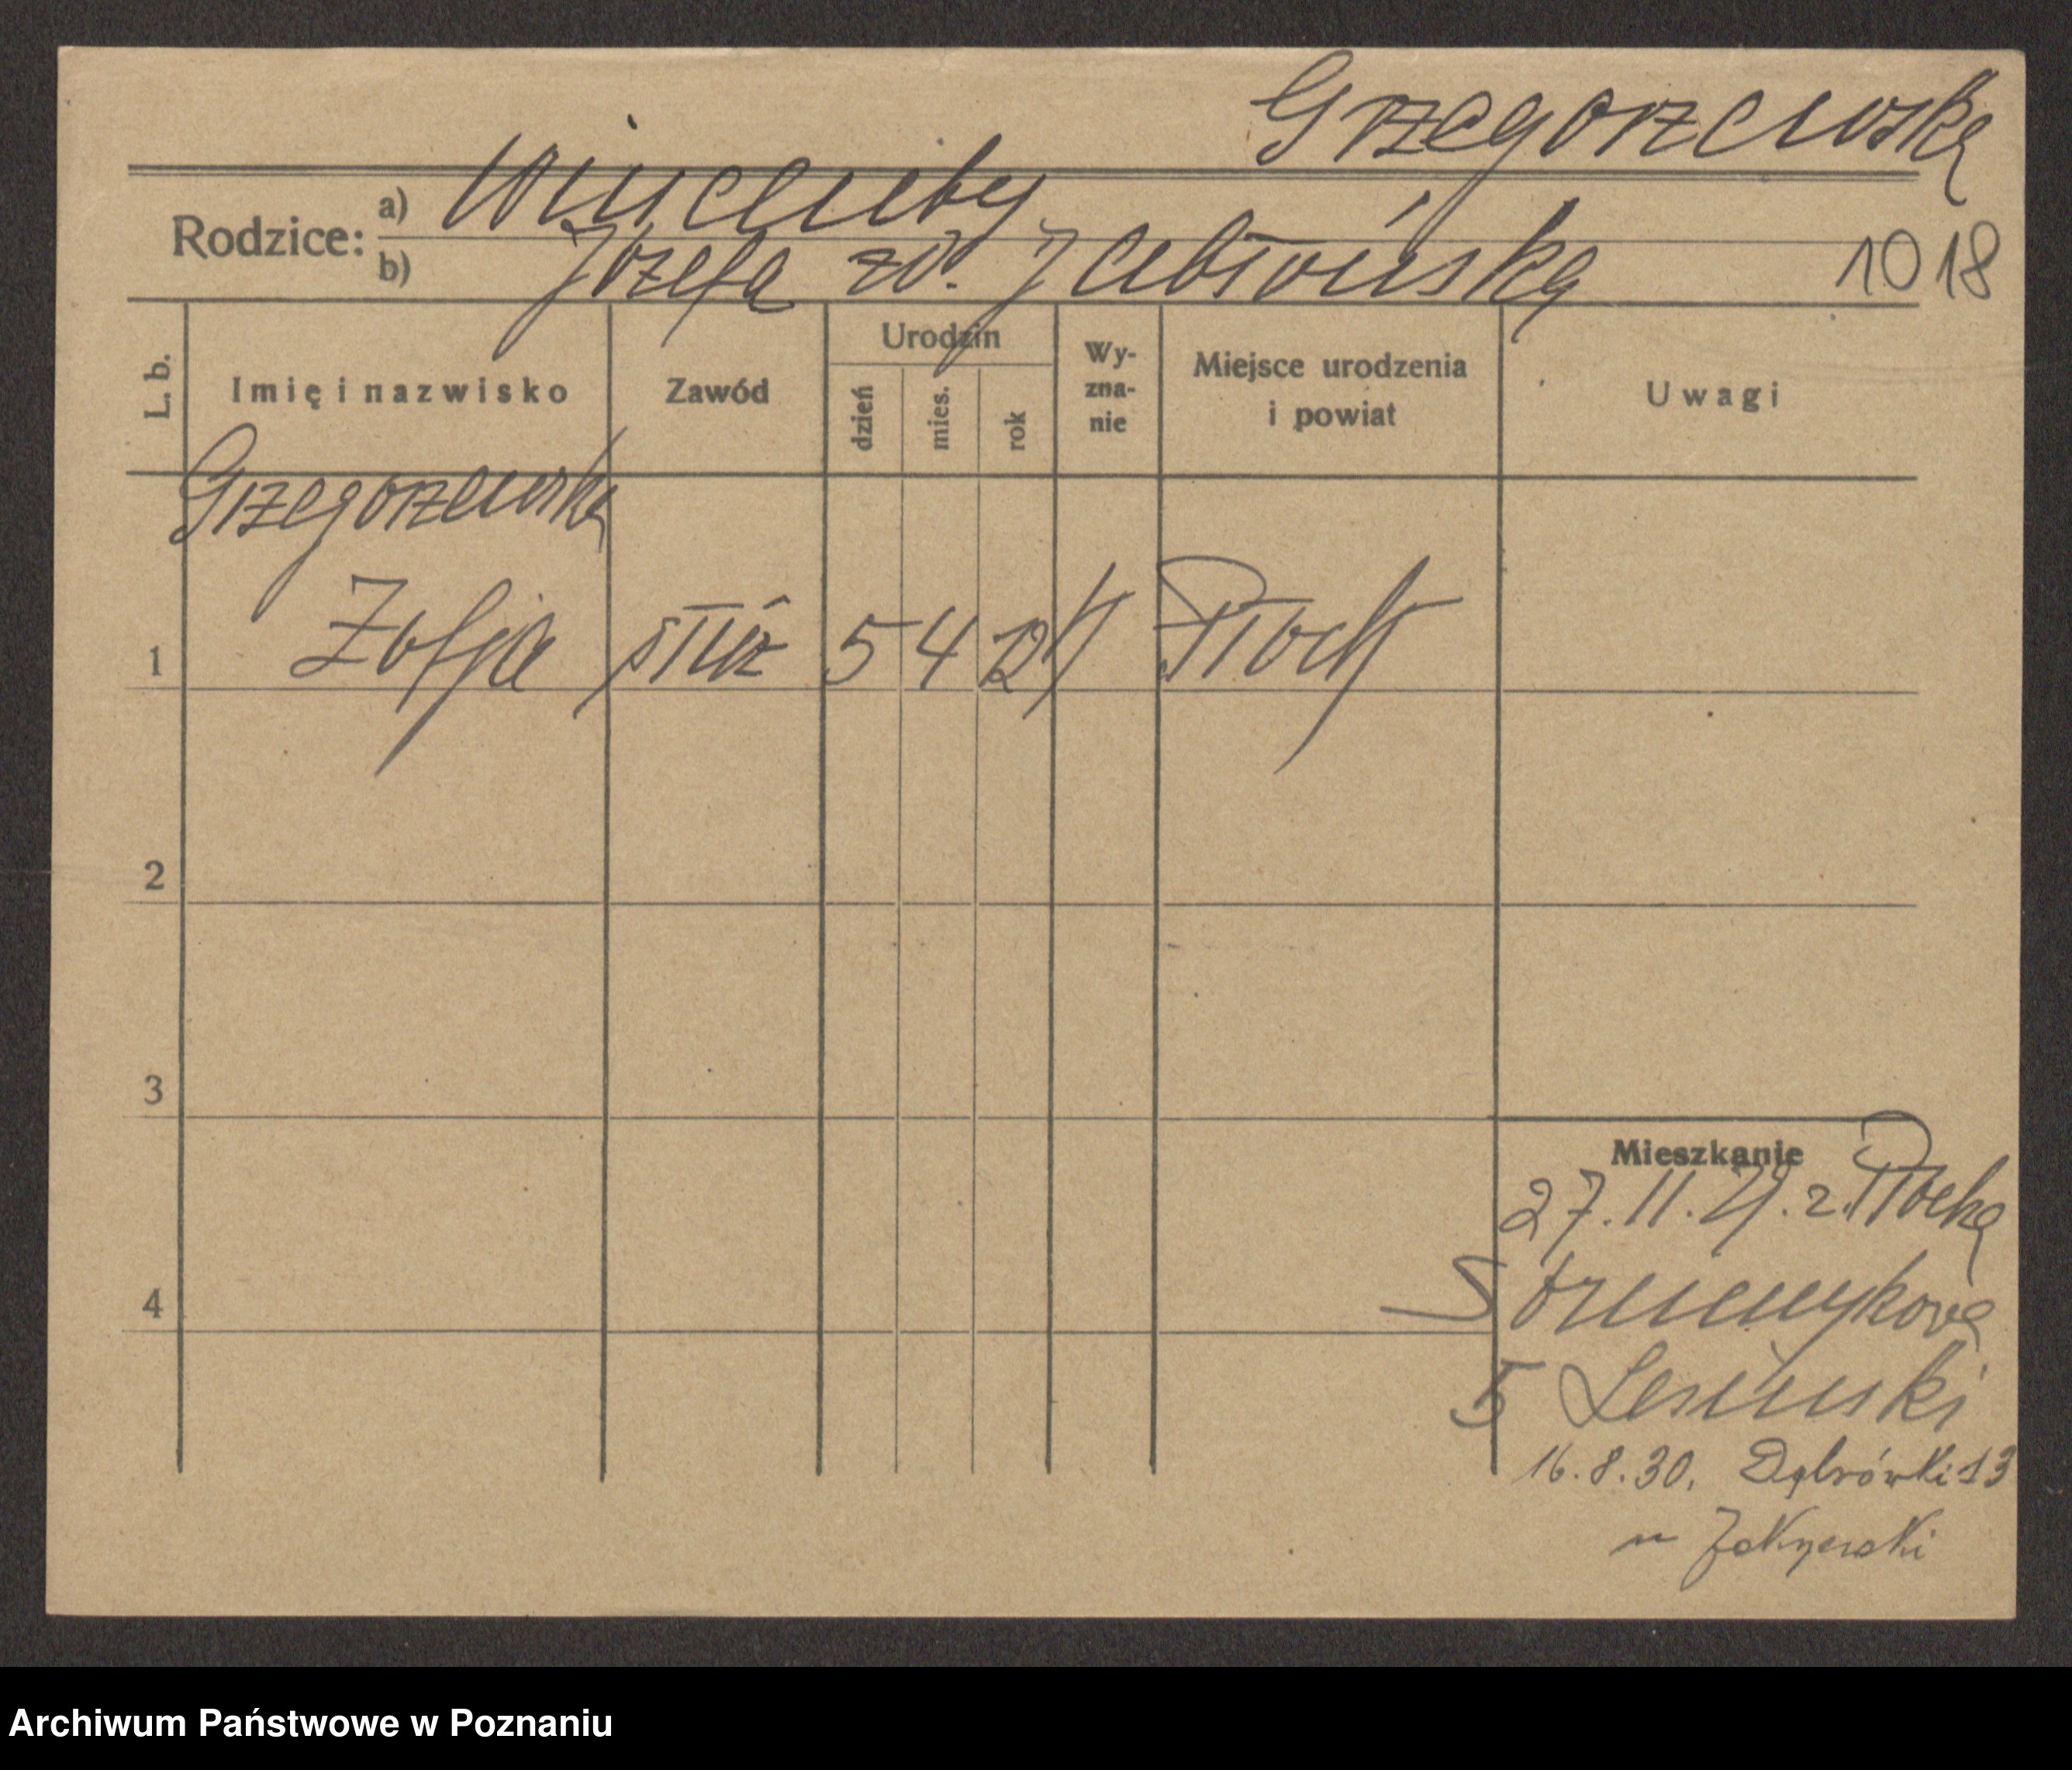 Grzegorzewska
Rodzice:
a) Wincenty
b) Józefa zd. Jabłońska
1018
L. b.
Imię i nazwisko
Zawód
Urodzin
dzień
mies.
rok
Wy-
zna-
nie
Miejsce urodzenia
i powiat
Uwagi
Grzegorzewska
1 Zofja służ 5 4 12 K Płock
2
3
4
Mieszkanie
27. 11. 29. z Płocka
5 Lesiński
16.8.30. Dąbrówki 13
Archiwum Państwowe w Poznaniu